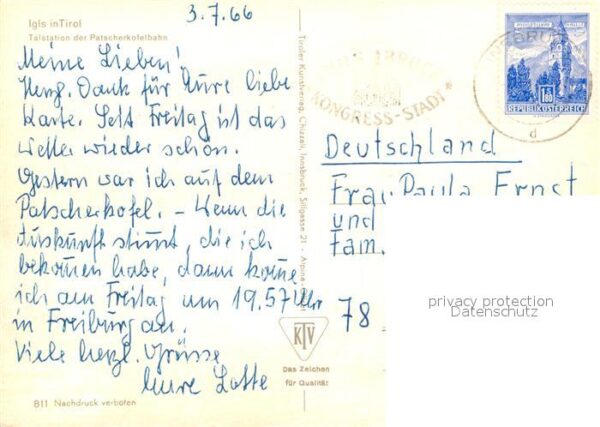 3.7.66
Igls in Tirol
Talstation der Patscherkofelbahn
Meine Lieben!
Herzl. Dank für Eure liebe
Karte. Seit Freitag ist das
Wetter wieder schön.
Gestern war ich auf dem
Patscherkofel. – Wenn die
Auskunft stimmt, die ich
bekommen habe, dann komme
ich am Freitag um 19.57 Uhr
in Freiburg an.
Viele herzl. Grüsse
Eure Lotte
811 Nachdruck verboten
Tiroler Kunstverlag Chizzali, Innsbruck, Sillgasse 21 - Alpine-
KTV
Das Zeichen
für Qualität
INNSBRUCK
KONGRESS-STADT
INNSBRUCK
d
1.80
REPUBLIK ÖSTERREICH
Deutschland
Frau Paula Ernst
und
Fam.
78
privacy protection
Datenschutz